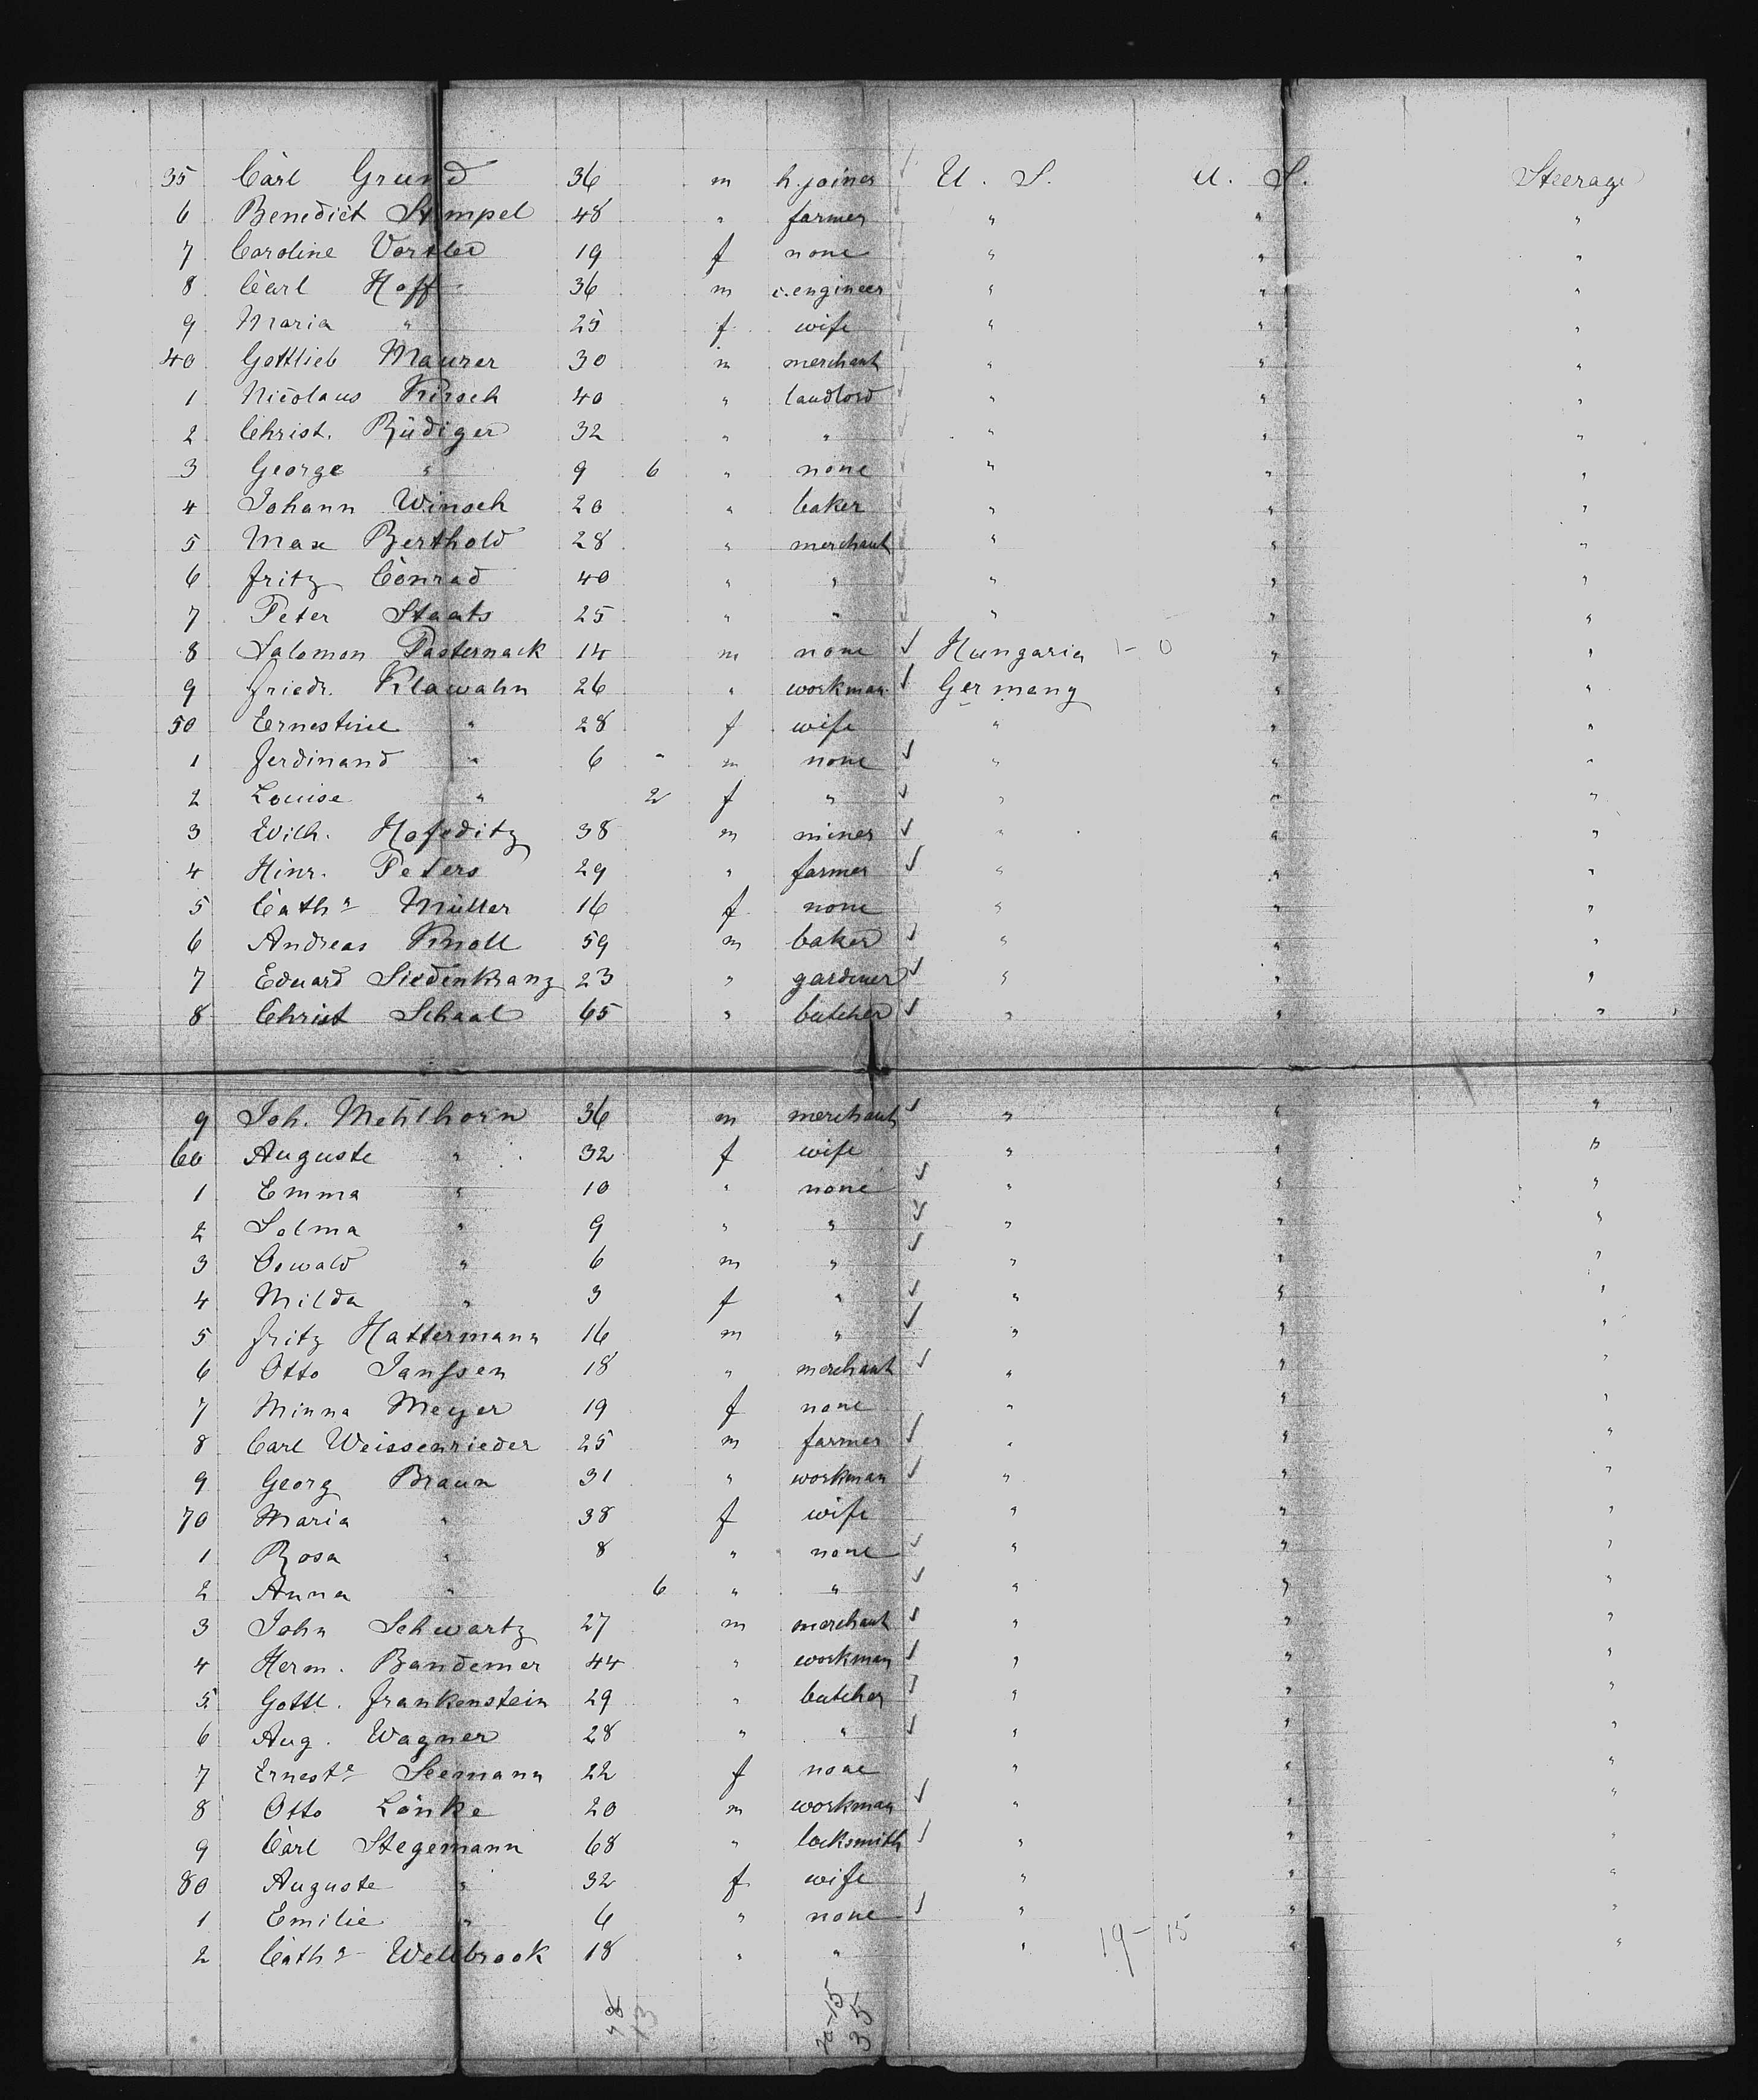 35 Carl Grund 36 m h. joiner U. S. U. S. Steerage
6 Benedict Stempel 48 " farmer " " "
7 Caroline 19 f none " " "
8 Carl Hoff 36 m c. engineer " " "
9 Maria " 25 f wife " " "
40 Gottlieb Maurer 30 m merchant " " "
1 Nicolaus Kirsch 40 " landlord " " "
2 Christ. Rüdiger 32 " " " " "
3 George " 9 6 " none " " "
4 Johann Winsch 20 " baker " " "
5 Max Berthold 28 " merchant " " "
6 Fritz Conrad 40 " " " " "
7 Peter Staats 25 " " " " "
8 Salomon Pasternack 14 m none ✓ Hungaria 1-0 " "
9 Friedr. Klawahn 26 " workman ✓ Germany " "
50 Ernestine " 28 f wife " " "
1 Ferdinand " 6 - m none ✓ " " "
2 Louise " 2 f " ✓ " " "
3 Wilh. Hofeditz 38 m miner ✓ " " "
4 Hinr. Peters 29 " farmer ✓ " " "
5 Cath.a Müller 16 f none " " "
6 Andreas Knoll 59 m baker ✓ " " "
7 Eduard Siedenkranz 23 " gardener ✓ " " "
8 Christ Schaal 65 " butcher ✓ " " "
9 Joh. Mehlhorn 36 m merchant ✓ " " "
60 Auguste " 32 f wife " " "
1 Emma " 10 " none ✓ " " "
2 Selma " 9 " " ✓ " " "
3 Oswald " 6 m " ✓ " " "
4 Milda " 3 f " ✓ " " "
5 Fritz Hattermann 16 m " ✓ " " "
6 Otto Janssen 18 " merchant ✓ " " "
7 Minna Meyer 19 f none " " "
8 Carl Weissenrieder 25 m farmer ✓ " " "
9 Georg Braun 31 " workman ✓ " " "
70 Maria " 38 f wife " " "
1 Rosa " 8 " none ✓ " " "
2 Anna " 6 " " ✓ " " "
3 John Schwartz 27 m merchant ✓ " " "
4 Herm. Bandemer 44 " workman ✓ " " "
5 Gottl. Frankenstein 29 " butcher ✓ " " "
6 Aug. Wagner 28 " " ✓ " " "
7 Ernest.e Seemann 22 f none " " "
8 Otto Lönke 20 m workman ✓ " " "
9 Carl Stegemann 68 " locksmith ✓ " " "
80 Auguste " 32 f wife " " "
1 Emilie " 6 " none ✓ " " "
2 Cath.a Wellbrook 18 " " " 19-15 " "
13 35